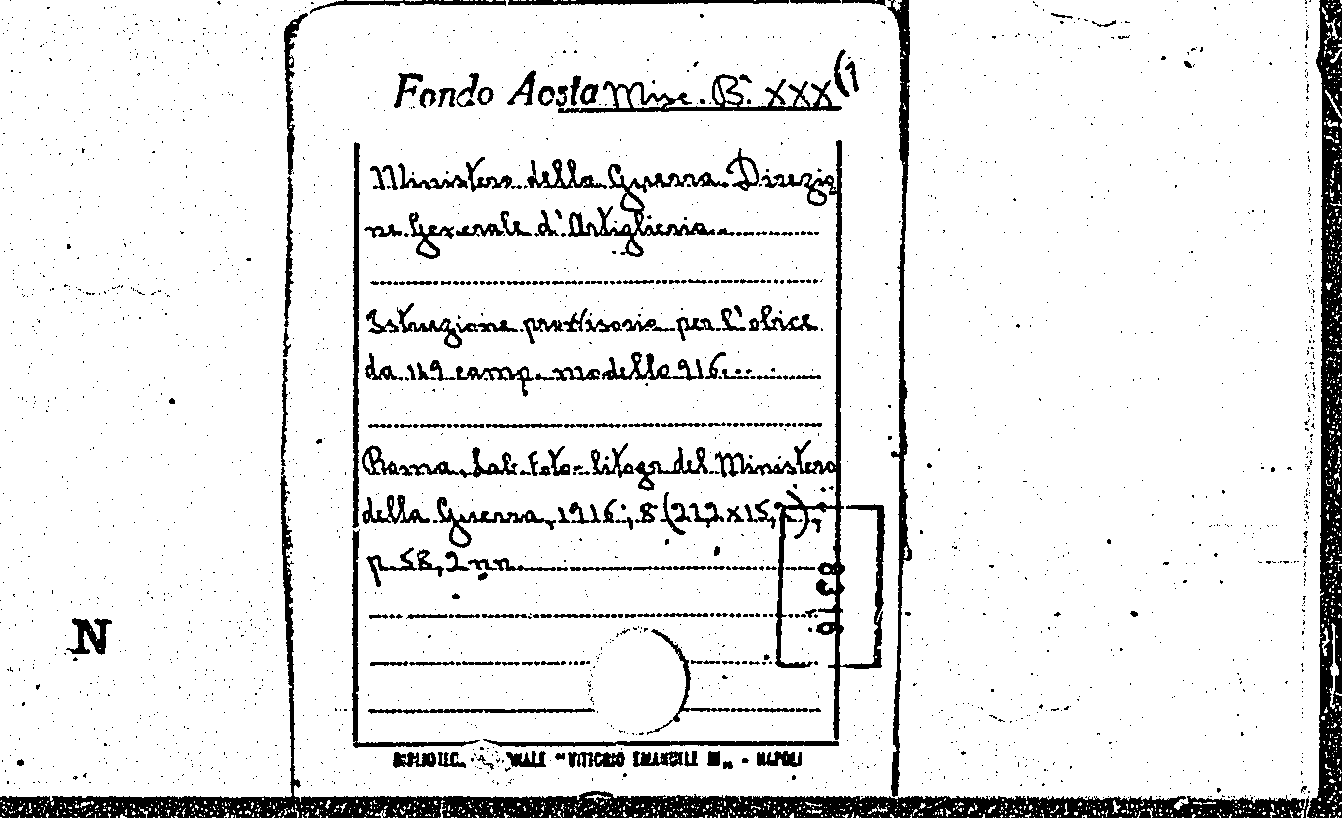 Fondo Aosta Misc. B. XXX(1
Ministero della Guerra. Direzio
ne Generale d'Artiglieria
Istruzione provvisoria per l'obice
da 149 camp. modello 916
Roma, Lab. foto-litogr del Ministero
della Guerra, 1916; 8 (21,2x15,2);
p. 58, 2 nn.
N
"VITTORIO EMANUELE III" - NAPOLI